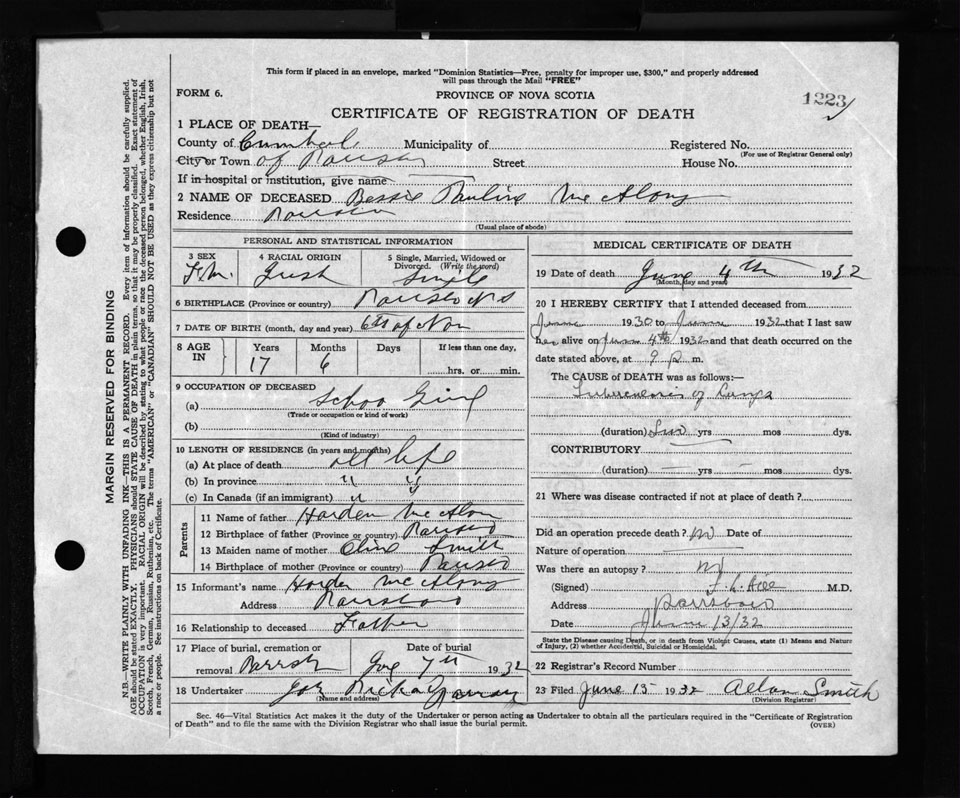 This form if placed in an envelope, marked "Dominion Statistics—Free, penalty for improper use, $300," and properly addressed
will pass through the Mail "FREE"
FORM 6.
PROVINCE OF NOVA SCOTIA
1223
CERTIFICATE OF REGISTRATION OF DEATH
1 PLACE OF DEATH—
County of Municipality of Registered No.
(For use of Registrar General only)
City or Town of Street House No.
If in hospital or institution, give name
2 NAME OF DECEASED Bessie
Residence
(Usual place of abode)
PERSONAL AND STATISTICAL INFORMATION
3 SEX 4 RACIAL ORIGIN 5 Single, Married, Widowed or
Divorced. (Write the word)
Fem. Irish Single
6 BIRTHPLACE (Province or country)
7 DATE OF BIRTH (month, day and year) 6th of Nov
8 AGE IN Years Months Days If less than one day,
17 6 hrs. or min.
9 OCCUPATION OF DECEASED
(a) School Girl
(Trade or occupation or kind of work)
(b)
(Kind of industry)
10 LENGTH OF RESIDENCE (in years and months)
(a) At place of death all life
(b) In province " "
(c) In Canada (if an immigrant) " "
Parents
11 Name of father Harden
12 Birthplace of father (Province or country)
13 Maiden name of mother Smith
14 Birthplace of mother (Province or country)
15 Informant's name Harden
Address
16 Relationship to deceased Father
17 Place of burial, cremation or Date of burial
removal 7th 1932
18 Undertaker
(Name and address)
MEDICAL CERTIFICATE OF DEATH
19 Date of death June 4th 1932
(Month, day and year)
20 I HEREBY CERTIFY that I attended deceased from
June 1930 to June 1932 that I last saw
her alive on June 4th 1932 and that death occurred on the
date stated above, at 9 p m.
The CAUSE OF DEATH was as follows:—
Tuberculosis of Lungs
(duration) yrs mos dys.
CONTRIBUTORY
(duration) — yrs — mos dys.
21 Where was disease contracted if not at place of death?
Did an operation precede death? no Date of
Nature of operation
Was there an autopsy? no
(Signed) M.D.
Address Parrsboro
Date June 13/32
State the Disease causing Death, or in death from Violent Causes, state (1) Means and Nature
of Injury, (2) whether Accidental, Suicidal or Homicidal.
22 Registrar's Record Number
23 Filed June 15 1932 Allan Smith
(Division Registrar)
Sec. 46—Vital Statistics Act makes it the duty of the Undertaker or person acting as Undertaker to obtain all the particulars required in the "Certificate of Registration
of Death" and to file the same with the Division Registrar who shall issue the burial permit.
(OVER)
MARGIN RESERVED FOR BINDING
N.B.—WRITE PLAINLY WITH UNFADING INK—THIS IS A PERMANENT RECORD. Every item of information should be carefully supplied.
AGE should be stated EXACTLY. PHYSICIANS should STATE CAUSE OF DEATH in plain terms, so that it may be properly classified. Exact statement of
OCCUPATION is very important. RACIAL ORIGIN will be described by stating to what people or race the deceased person belonged, whether English, Irish,
Scotch, French, German, Russian, Ruthenian, etc. The terms "AMERICAN" or "CANADIAN" SHOULD NOT BE USED as they express citizenship but not
a race or people. See instructions on back of Certificate.